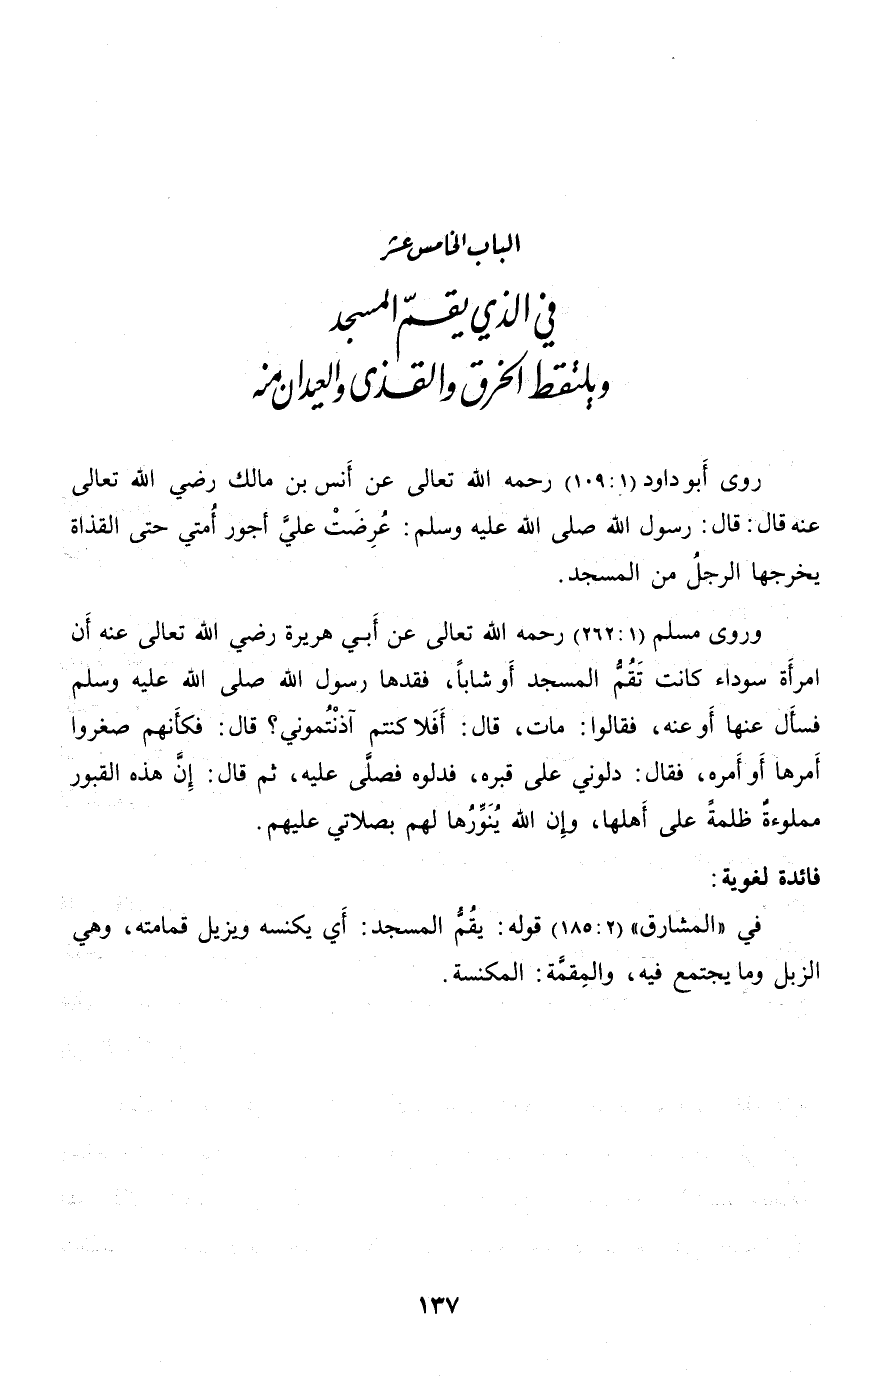 الباب الخامس عشر
في الذي يقمّ المسجد
ويلتقط الخرق والقذى والعيدان منه
روى أَبو داود (١:١٠٩) رحمه الله تعالى عن أَنس بن مالك رضي الله تعالى
عنه قال: قال: رسول الله صلى الله عليه وسلم: عُرِضَتْ عليَّ أجور أُمتي حتى القذاة
يخرجها الرجلُ من المسجد.
وروى مسلم (١:٢٦٢) رحمه الله تعالى عن أَبي هريرة رضي الله تعالى عنه أن
امرأَة سوداء كانت تَقُمُّ المسجد أَو شاباً، فقدها رسول الله صلى الله عليه وسلم
فسأَل عنها أَو عنه، فقالوا: مات، قال: أَفَلا كنتم آذنْتُموني؟ قال: فكأَنهم صغروا
أَمرها أَو أَمره، فقال: دلوني على قبره، فدلوه فصلَّى عليه، ثم قال: إِنَّ هذه القبور
مملوءةٌ ظلمةً على أَهلها، وإِن الله يُنَوِّرُها لهم بصلاتي عليهم.
فائدة لغوية:
في «المشارق» (٢:١٨٥) قوله: يقُمُّ المسجد: أَي يكنسه ويزيل قمامته، وهي
الزبل وما يجتمع فيه، والمِقمَّة: المكنسة.
١٣٧